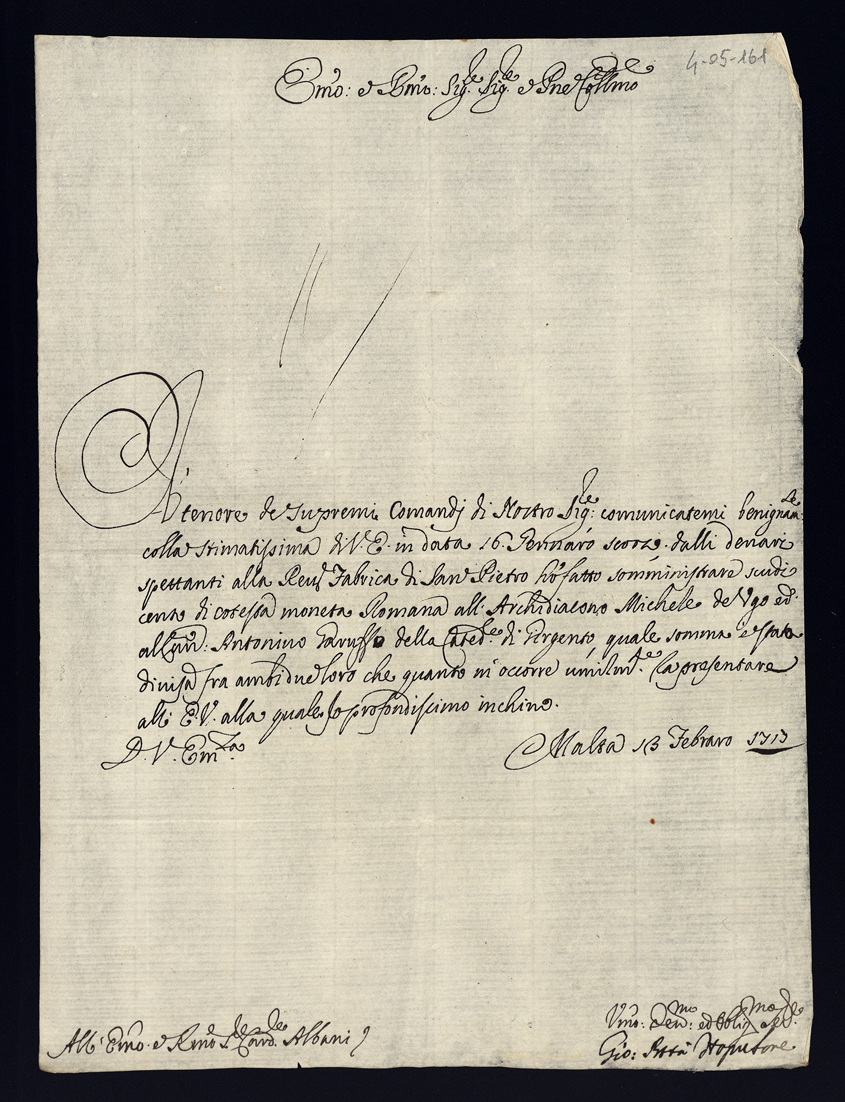 4-05-161
Emo: e Rmo: Sig.re Sig.re e Pne Collmo
A tenore de Supremi Comandj di Nostro Sig.re: comunicatemi benignam.te
colla stimatissima di V. E. in data 16. Gennaro scorzo. dalli denari
spettanti alla Reu: Fabrica di San Pietro hò fatto somministrare scudi
cento di cotessa moneta Romana all: Archidiacono Michele de Ugo ed:
al Can: Antonino della Cated.le di Girgento, quale somma è stata
divisa fra ambidue loro che quanto m'occorre umilm.te rapresentare
all: E. V. alla quale fo profondissimo inchino.
D. V. Em.za
Malta 13 Febraro 1713
All: Emo. e Rmo S.re Card.le Albani
Umo: Deu:mo ed Oblig.mo
Gio: Batta